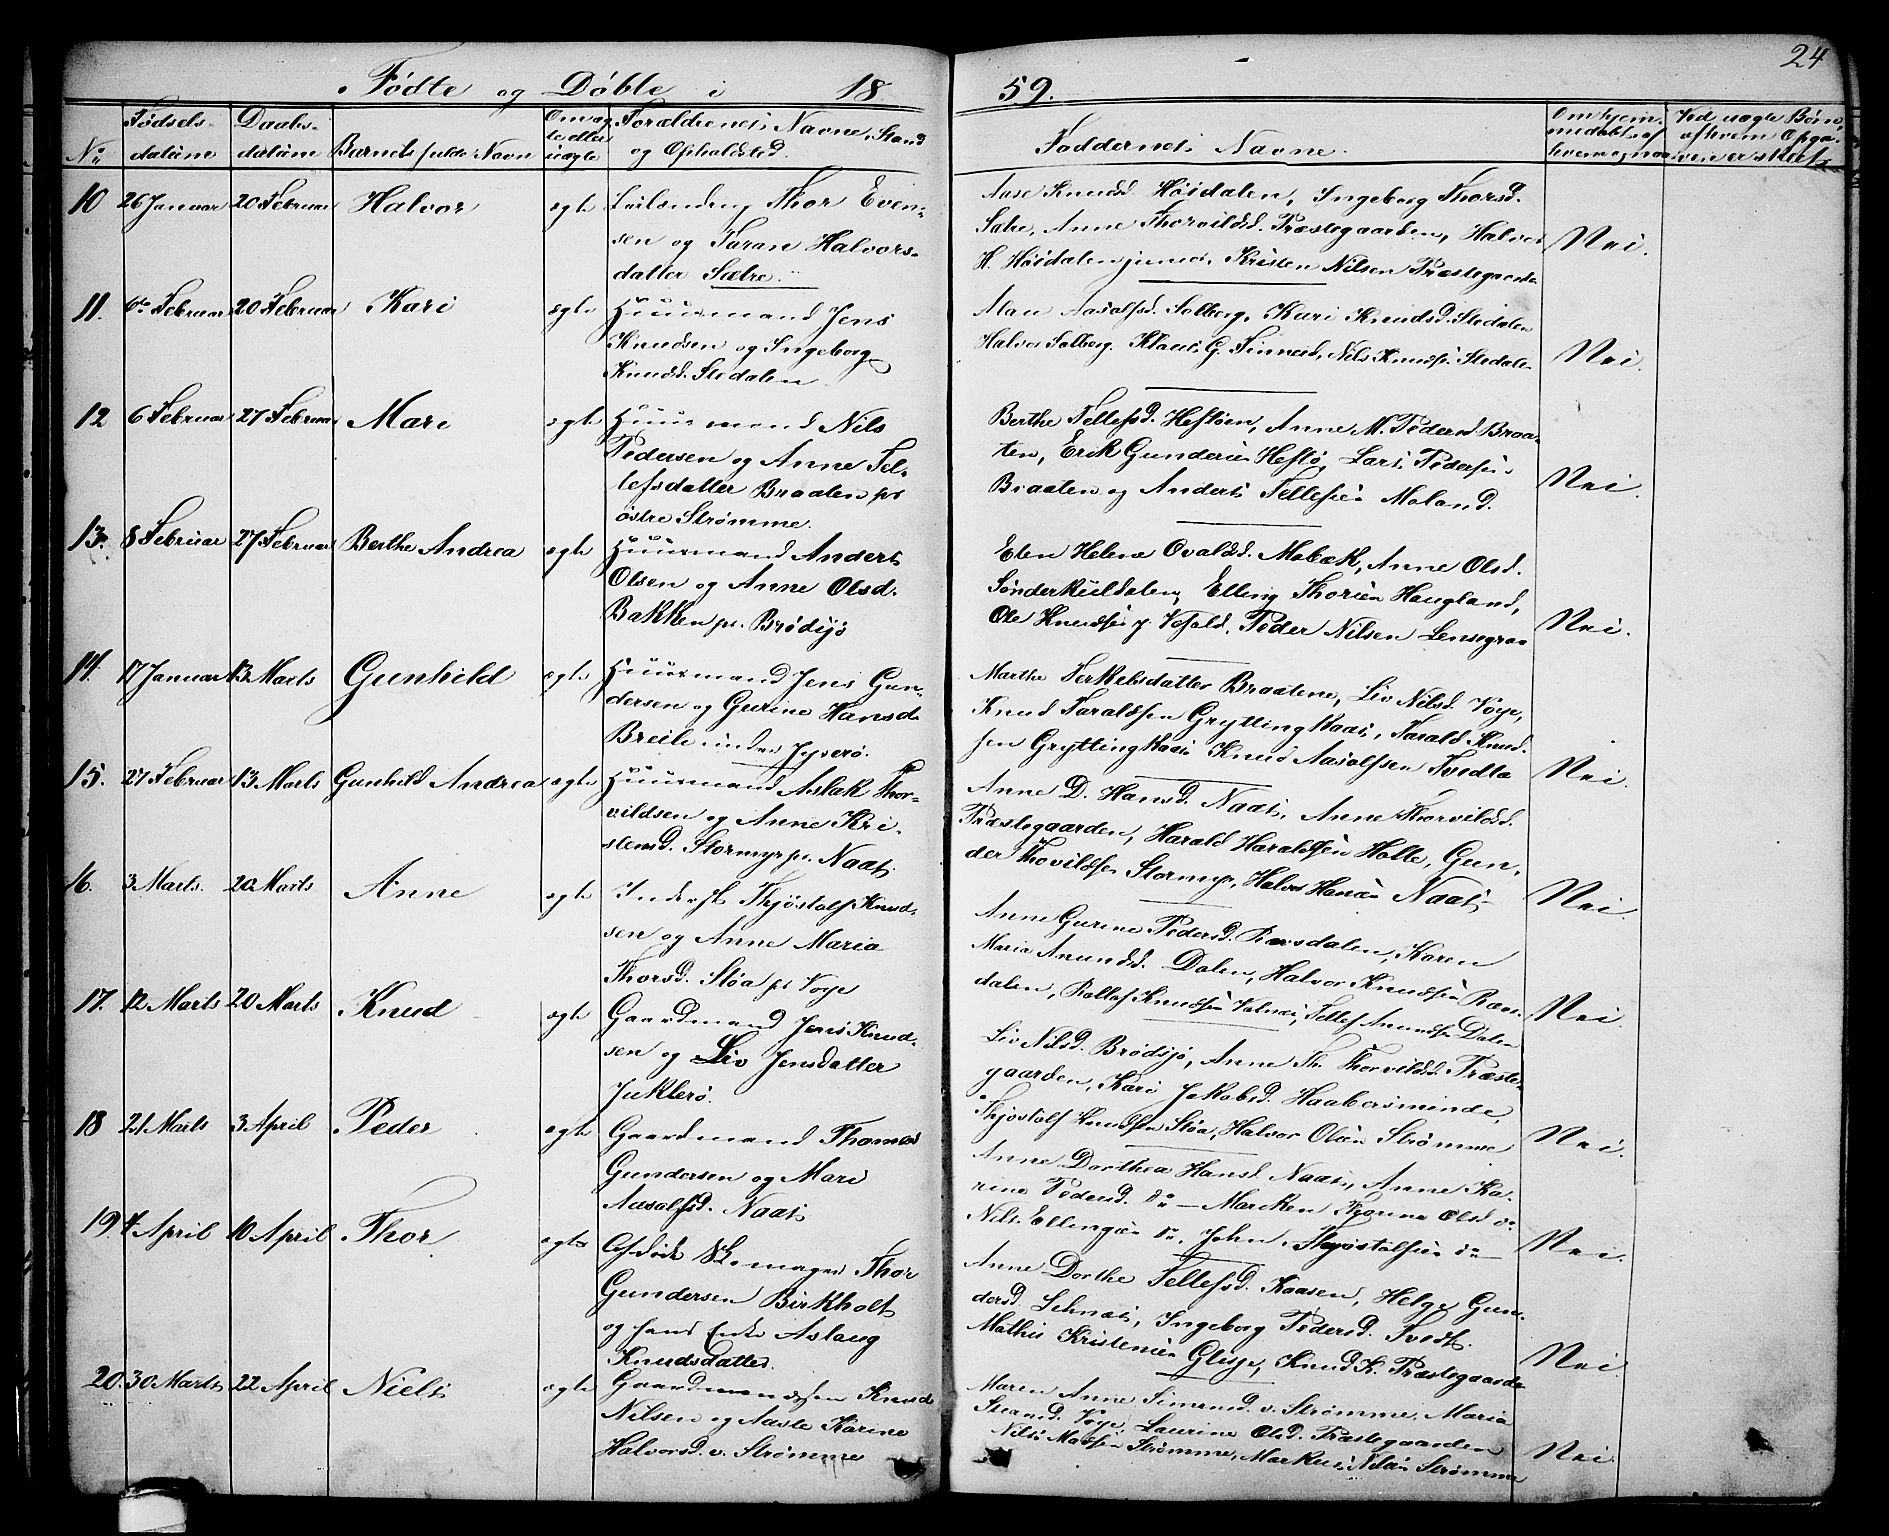 24
Fødte og Døbte i 1859.
No
Fødsels-
datum
Daabs-
datum
Barnets fulde Navn
Om æg-
te eller
uægte
Forældrenes Navne, Stand
og Opholdsted.
Faddernes Navne.
Om hjem-
medøbt af
hvem og naar
Ved uægte Børn,
af hvem Opga-
ven er skeet
10 26 Januar 20 Februar Halvor ægte Thor Even-
sen og Taran Halvors-
datter Sætre.
Aase Knudsd. Høidalen, Ingeborg Thorsd.
Sætre, Anne Thorvildsd. Præstegaarden, Halvor
H. Høidalen junior, Kristen Nilsen Præstegaarden
Nei.
11. 6te Februar 20 Februar Kari ægte Huusmand Jens
Knudsen og Ingeborg
Knudsd. Stedalen
Aasolfsd. Solberg, Kari Knudsd. Stedalen
Halvor Solberg. Klaus G. Tinnes, Nils Knudsen Stedalen
Nei.
12 6 Februar 27 Februar Mari ægte Huusmand Nils
Pedersen og Anne Tel-
lefsdatter Braaten pr
østre Strømme.
Berthe Tellefsd. Hefteøen, Anne M. Pedersd Braa-
ten, Erik Gundersen Heftø, Lars Pedersen
Braaten og Anders Tellefsen Moland.
Nei.
13. 8 Februar 27 Februar Berthe Andrea ægte Huusmand Anders
Olsen og Anne Olsd.
Bakken pr. Brødsjø
Elen Helene Ovaldsd. Mobæk, Anne Olsd.
Sønderkuildalen, Elling Thorsen Haugland,
Ole Knudsen Vefald, Peder Nilsen Lensegrav
Nei.
14. 17 Januar 13 Marts Gunhild ægte Huusmand Jens Gun-
dersen og Gurine Hansd.
Breili under Jyserø.
Marthe Terkelsdatter Braatene, Liv Nilsd. Voje,
Knud Taraldsen Gryttingkaas, Tarald Knud-
sen Gryttingkaas Knud Aasolfsen Tvedta
Nei.
15. 27 Februar 13 Marts Gunhild Andrea ægte Huusmand Aslak Thor-
vildsen og Anne Kri-
stensd. Stormyr pr. Naas.
Anne D. Hansd. Naas, Anne Thorvildsd.
Præstegaarden, Harald Haraldsen Holte, Gun-
der Thovildsen Stormyr, Halvor Hansen Naas
Nei
16. 3 Marts. 20 Marts Anne ægte Inderst Thjøstolf Knud-
sen og Anne Maria
Thorsd. Støa pr Voje
Anne Gurine Pedersd. Ravsdalen, Karen
Maria Amundsd. Dalen, Halvor Knudsen Ravs-
dalen, Rollef Knudsen Valnes, Tellef Amundsen Dalen
Nei.
17. 12 Marts 20 Marts Knud ægte Gaardmand Jens Knud-
sen og Liv Jensdatter
Juklerø.
Liv Nilsd. Brødsjø, Anne Th. Thorvildsd. Præste-
gaarden, Kari Jakobsd. Haabersminde,
Thjøstolf Knudsen Støa, Halvor Olsen Strømme
Nei.
18 21 Marts 3 April Peder ægte Gaardmand Thomas
Gundersen og Mari
Aasolfsd. Naas
Anne Dorthea Hansd Naas, Anne Ka-
rine Pedersd. do — Marken Karine Olsd do
Nils Ellingsen do, John Thjøstolfsen do —
Nei.
19 4 April 10 April Thor. ægte Thor
Gundersen Birkholt
og hans Enke Aslaug
Knudsdatter.
Anne Dorthe Tellefsd. Kaasen, Helge Gun-
dersd. Ingeborg Pedersd. Tvedt.
Mathis Kristensen Glisje, Knud K. Præstegaarden
Nei.
20. 30 Marts 22 April Niels ægte Gaardmandssøn Knud
Nilsen og Aaste Karine
Halvorsd. v. Strømme
Maren Anne Simensd. v. Strømme, Maria
Voje, Laurine Olsd. Præstegaarden
Nils Madsen Strømme, Markus Nilsen Strømme
Nei